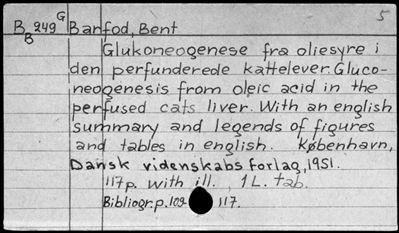 5
B B 249 G Barfod, Bent
Glukoneogenese fra oliesyre i
den perfunderede kattelever. Gluco-
neogenesis from oleic acid in the
perfused cats liver. With an english
summary and legends of figures
and tables in english. København,
Dansk videnskabs forlag, 1951.
117 p. with ill. , 1 L. tab.
Bibliogr. p. 109 117.